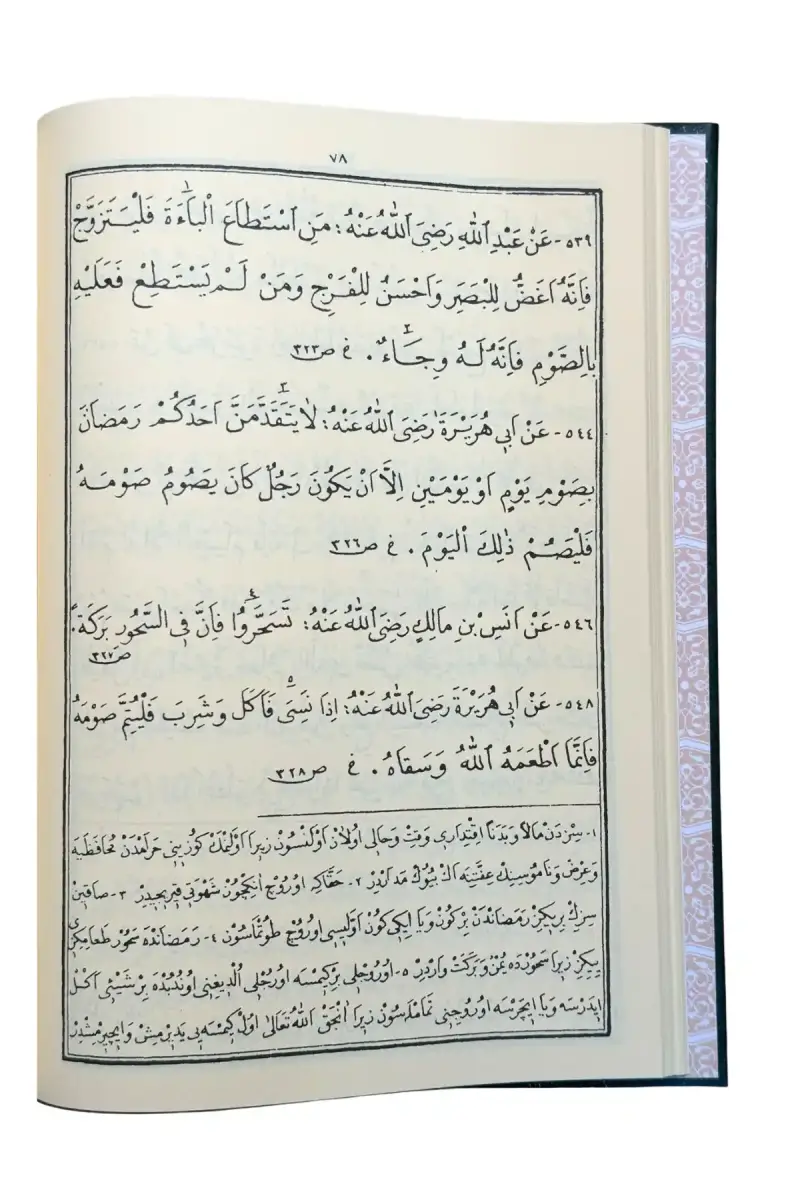 ٧٨
٥٣٩- عَنْ عَبْدِ اللهِ رَضِيَ اللهُ عَنْهُ: مَنِ اسْتَطَاعَ الْبَاءَةَ ١ فَلْيَتَزَوَّجْ
فَاِنَّهُ اَغَضُّ لِلْبَصَرِ وَاَحْسَنُ لِلْفَرْجِ وَمَنْ لَمْ يَسْتَطِعْ فَعَلَيْهِ
بِالصَّوْمِ فَاِنَّهُ لَهُ وِجَاءٌ ٢. خ ص ٣٢٣
٥٤٤- عَنْ اَبِي هُرَيْرَةَ رَضِيَ اللهُ عَنْهُ: لاَ يَتَقَدَّمَنَّ ٣ اَحَدُكُمْ رَمَضَانَ
بِصَوْمِ يَوْمٍ اَوْ يَوْمَيْنِ اِلاَّ اَنْ يَكُونَ رَجُلٌ كَانَ يَصُومُ صَوْمَهُ
فَلْيَصُمْ ذٰلِكَ الْيَوْمَ. خ ص ٣٢٦
٥٤٦- عَنْ اَنَسِ بْنِ مَالِكٍ رَضِيَ اللهُ عَنْهُ: تَسَحَّرُوا ٤ فَاِنَّ فِي السَّحُورِ بَرَكَةً.
ص ٣٢٧
٥٤٨- عَنْ اَبِي هُرَيْرَةَ رَضِيَ اللهُ عَنْهُ: اِذَا نَسِيَ ٥ فَاَكَلَ وَشَرِبَ فَلْيُتِمَّ صَوْمَهُ
فَاِنَّمَا اَطْعَمَهُ اللهُ وَسَقَاهُ. خ ص ٣٢٨
١- سِزْدَنْ مَالاً وَبَدَنًا اِقْتِدَارِى وَقْتْ وَحَالِى اُولاَنْ اَوْلَنْسُونْ زِيرَا اَوْلَنْمَكْ كُوزِينِى حَرَامْدَنْ مُحَافَظَيَه
وَعِرْضْ وَنَامُوسِنِكْ عِفَّتِنَه اَكْ بُيُوكْ مَدَارْدِرْ ٢- حَقَّاكِه اُورُوجْ اَنِكْچُونْ شَهْوَتِى قِيرِيجِيدِرْ ٣- صَاقِينْ
سِزِكْ بِرِيكِزْ رَمَضَانْدَنْ بِرْ كُونْ وَيَا اِيكِى كُونْ اَوَّلِيسِى اُورُوجْ طُوتْمَاسُونْ ٤- رَمَضَانْدَه سَحُورْ طَعَامِكِزِى
يِيكِزْ زِيرَا سَحُورْدَه يُمْنْ وَبَرَكَتْ وَارْدِرْ ٥- اُورُوجْلِى بِرْ كِيمْسَه اُورُجْلِى اُلْدِيغِنِى اُونُدُبْدَه بِرْ شَيْئِى اَكْلْ
اِيدَرْسَه وَيَا اِيچَرْسَه اُورُوجِنِى تَمَامْلَسُونْ زِيرَا اَنْجَقْ اللهُ تَعَالَى اُولْ كِيمْسَه يِى يَدِيرْمِشْ وَاِيچِيرْمِشْدِرْ